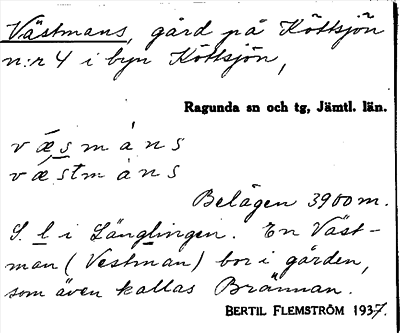 Västmans, gård på Köttsjön
n:r 4 i byn Köttsjön,
Ragunda sn och tg, Jämtl. län.
væsmàns
væstmàns
Belägen 3900 m.
S. l i Långlingen. En Väst-
man (Vestman) bor i gården,
som även kallas Brännan.
BERTIL FLEMSTRÖM 1937.